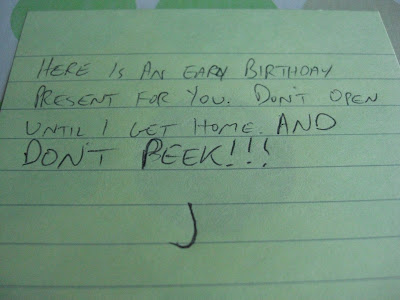 HERE IS AN EARY BIRTHDAY
PRESENT FOR YOU. DON'T OPEN
UNTIL I GET HOME. AND
DON'T PEEK!!!
J